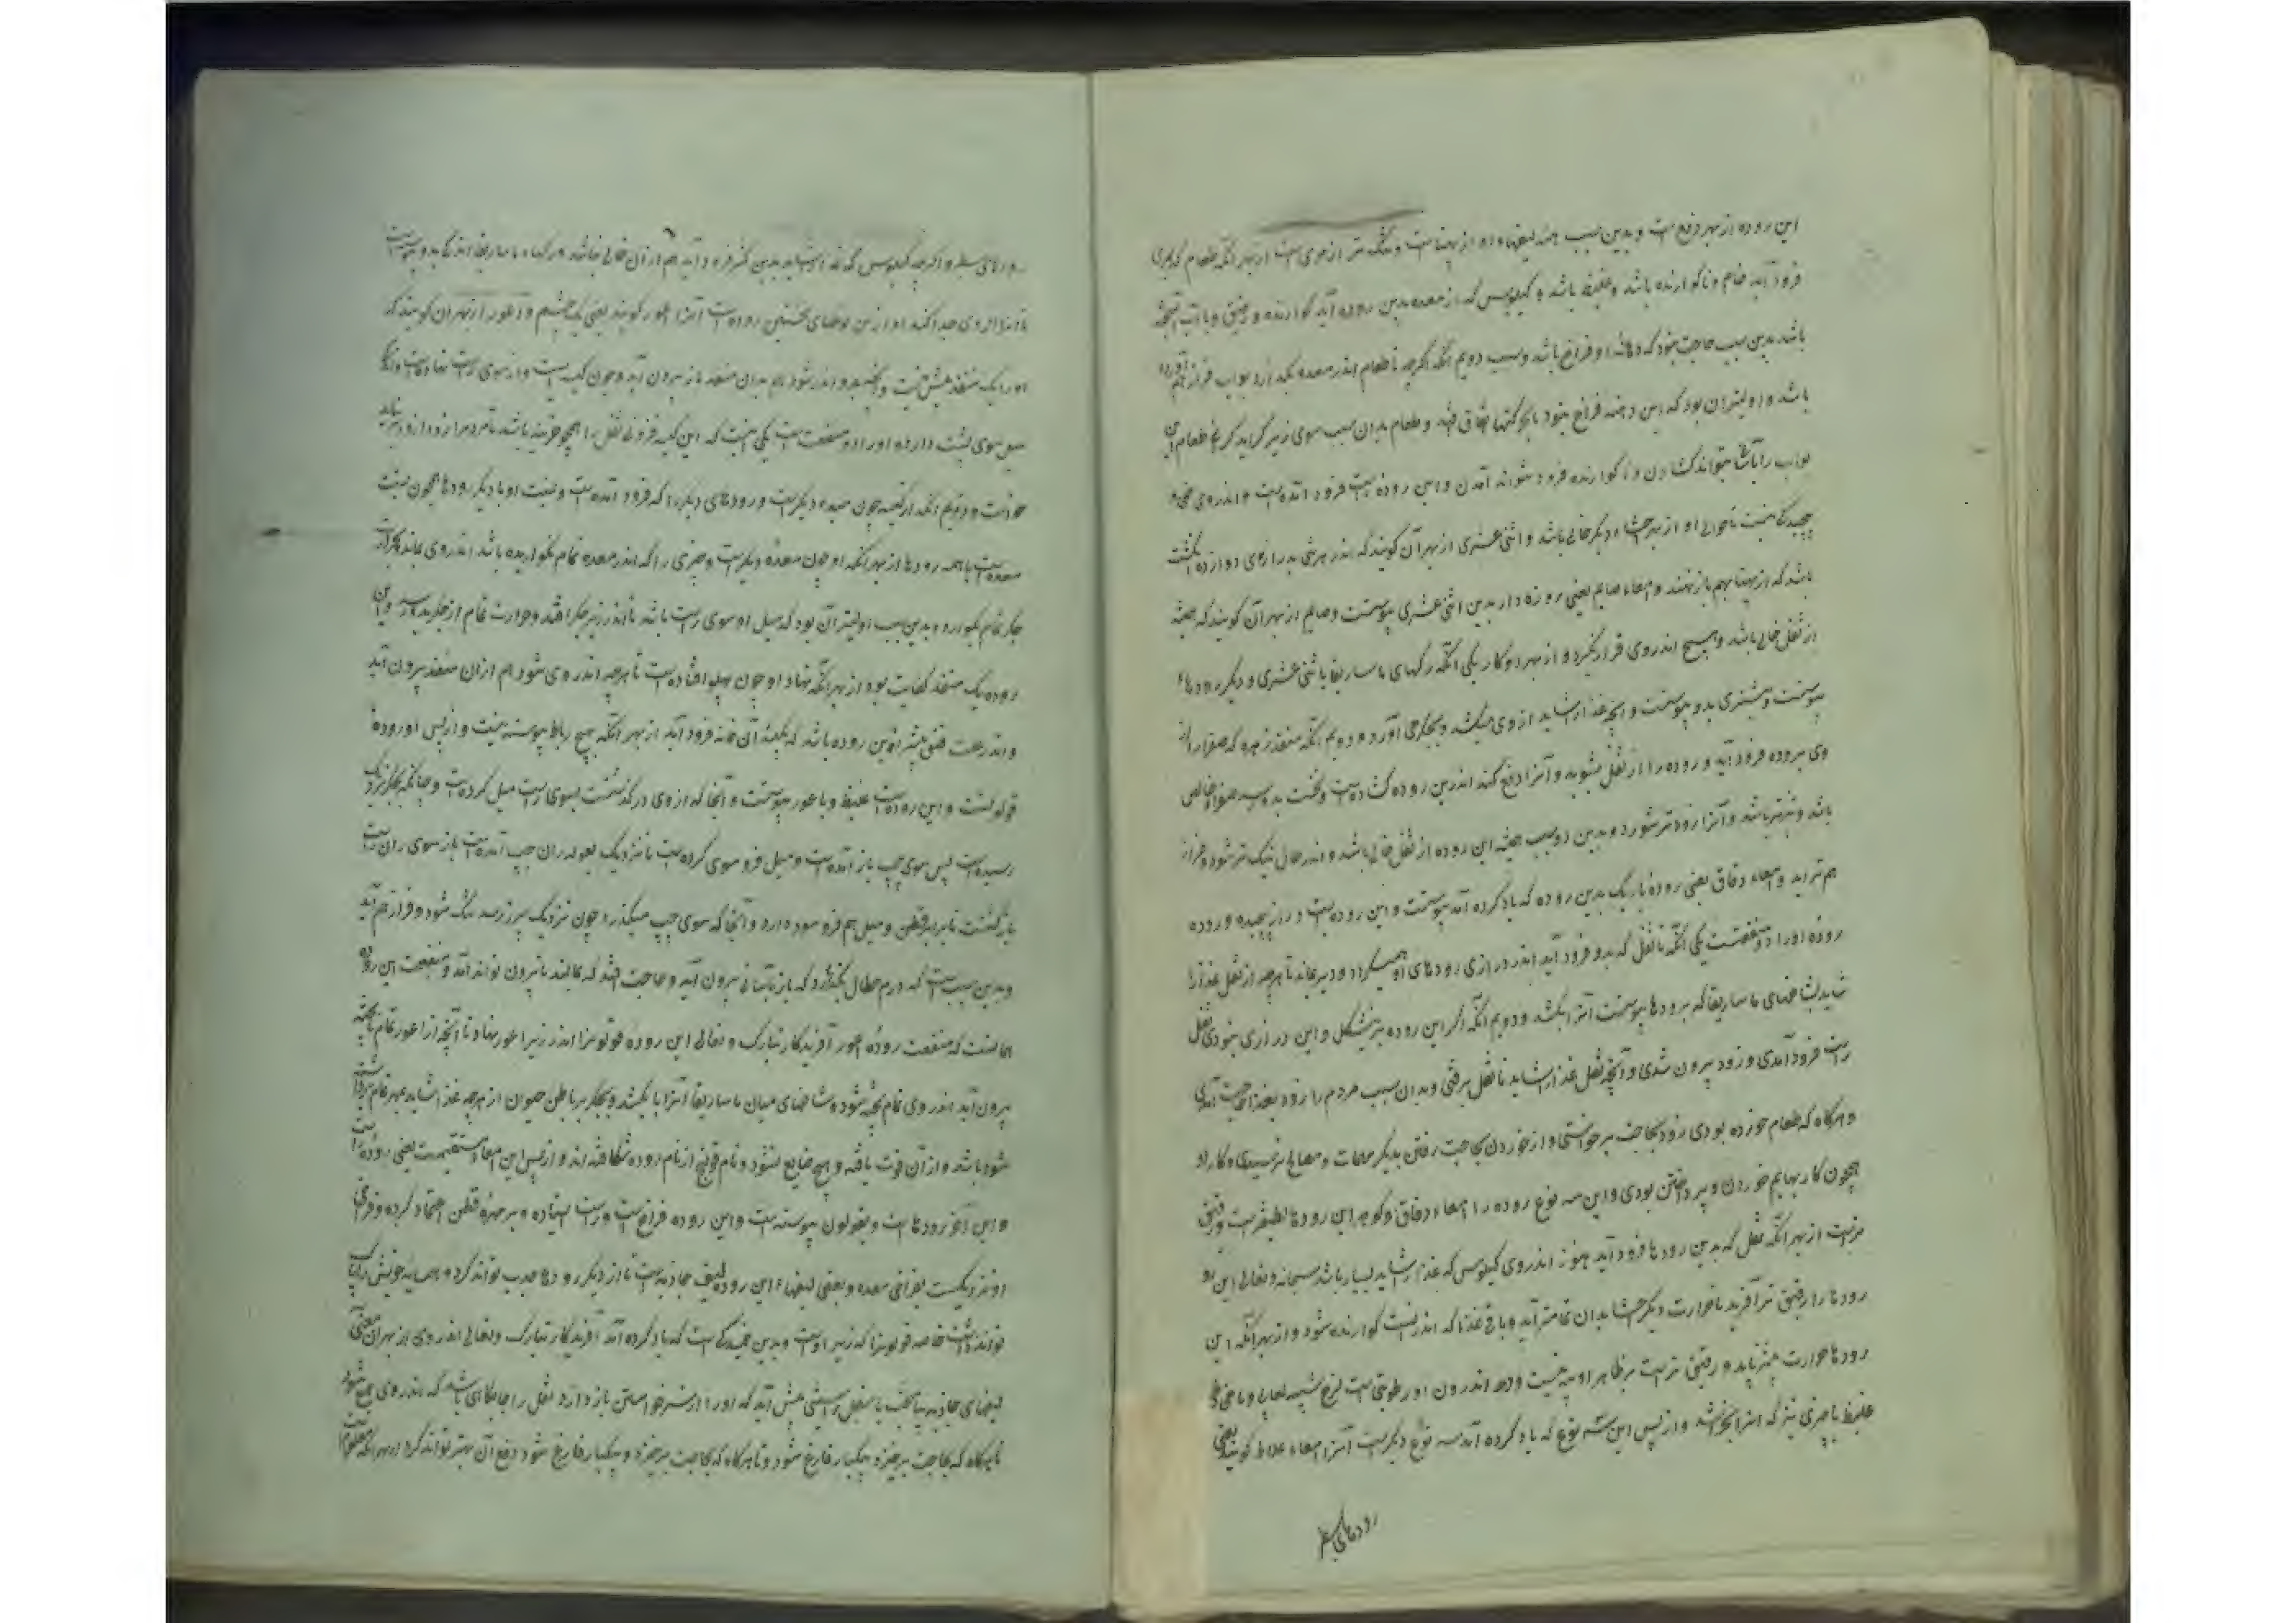 این روده از بهر دفع است و بدین سبب همه لیفهاء او از پهناست و تنگ تر از مری است از بهر آنکه طعام که بمری
فرود آید خام و ناگوارنده باشد و غلیظ باشد و کیلوس که از معده بدین روده آید گوارنده و رقیق و با آب آمیخته
باشد بدین سبب حاجت نبود که دهانه او فراخ باشد و سبب دویم آنکه اگرچه تا طعام اندر معده بود بواب فراز هم آورده
باشد و اولیتر آن بود که این دهنه فراخ نبود تا اگر طعام بدان سبب سوی زیر گراید طعام
بواب را آسان نتواند گشادن و ناگوارنده فرود نتواند آمدن و این روده راست فرود آمده است و اندر وی هیچ
پیچیدگی نیست تا حوالی او از بهر احشاء دیگر خالی باشد و اثنی عشری از بهر آن گویند که اندر هر شخصی بدرازی دوازده انگشت
باشد که از پهنا بهم باز نهند و معاء صایم یعنی روزه دار بدین اثنی عشری پیوسته است و صایم از بهر آن گویند که همیشه
از ثفل خالی باشد و هیچ اندر وی قرار نگیرد و از بهر دو کار یکی آنکه رگهای ماساریقا باثنی عشری و دیگر رودها
پیوسته است و بیشتری بدو پیوسته است و آنچه غذا را شاید از وی میکشد و بجگر می آورد و دویم آنکه منفذ زهره که صفرا از
وی بروده فرود آید و روده را از ثفل بشوید و آنرا دفع کند اندرین روده گشاده است و نخست بدو رسد صفراء خالص
باشد و تیزتر باشد و آنرا زودتر شورد و بدین دو سبب همیشه این روده از ثفل خالی باشد و اندر حال تنگ تر شود و فراز
هم تر آید و معاء دقاق یعنی روده باریک بدین روده که یاد کرده آمد پیوسته است و این روده ایست دراز پیچیده و روده
روده او را دو منفعت است یکی آنکه تا ثفل که بدو فرود آید اندر درازی رودهای او همیگردد و دیر بماند تا هرچه از ثفل غذا را
شاید شاخهای ماساریقا که برودها پیوسته است آنرا بکشد و دویم آنکه اگر این روده و این درازی نبودی ثفل
راست فرود آمدی و زود بیرون شدی و آنچه ثفل غذا را شاید با ثفل برفتی و بدان سبب مردم را زود بغذا حاجت آمدی
و هرگاه که طعام خورده بودی زود بحاجت برخواستی و از خوردن بحاجت رفتن بدیگر مهمات و مصالح نرسیدی و کار او
همچون کار بهایم خوردن و پرداختن بودی و این سه نوع روده را امعاء دقاق گویند و گوهر این رودها لطیفتر است و رقیق
تر است از بهر آنکه ثفل که بدین رودها فرود آید هنوز اندر وی کیلوس که غذا را شاید بسیار باشد سبحانه و تعالی این
رودها را رقیق تر آفرید تا حرارت دیگر احشا بدان تمامتر آید و باقی غذا که اندر ثفل است گوارنده شود و از بهر آنکه این
رودها حرارت بیشتر یابد و رقیق تر است بر ظاهر او پیه نیست و اندرون او رطوبتی است لزج شبیه لعابی تا خلطی
غلیظ یا چیزی تیز که آنرا بخراشد و از پس این سه نوع که یاد کرده آمد سه نوع دیگر است آنرا امعاء غلاظ گویند یعنی
رودهای سطبر
رودهای سطبر و اگرچه کیلوس که غذا را شاید بدین کمتر فرود آید هم از آن خالی نباشد و رگهاء ماساریقا اندکی بدو پیوسته است
تا غذا از وی جدا کند و از این نوعهای نخستین روده است آنرا اعور گویند یعنی یک چشم و اعور از بهر آن گویند که
او را یک منفذ بیش نیست و آنچه بدو اندر شود هم بدان منفذ باز بیرون آید و چون کیسه ایست و از سوی راست نهاده است و اندکی
میل سوی پشت دارد و او را دو منفعت است یکی اینست که این کیسه فرود ثفل را همچو خزینه باشد تا مردم را زود ازود
حاجت و دویم آنکه این کیسه چون معده دیگر است و رودهای دیگر را که فرود آمده است و نسبت او با دیگر رودها همچون نسبت
معده است با همه رودها از بهر آنکه او چون معده دیگر است و چیزی را که اندر معده تمام نگواریده باشد اندر وی بماند
جگر تمام بگوارد و بدین سبب اولیتر آن بود که میل او سوی راست باشد تا اندر زیر جگر افتد و حرارت تمام از جگر بدو رسد و این
روده یک منفذ کفایت بود از بهر آنکه نهاد او چون پهلو افتاده است تا هرچه اندر وی شود هم از آن منفذ بیرون آید
و اندر علت فتق بیشتر این روده باشد که بکیسه آن خانه فرود آید از بهر آنکه هیچ رباط پیوسته نیست و از پس او روده
قولون است و این روده ایست غلیظ و با اعور پیوسته است و آنجا که از وی درگذشت بسوی راست میل کرده است و چنانکه بجگر نزدیک
رسیده است پس سوی چپ باز آمده است و میل فرو سوی کرده است تا نزدیک بغوله ران چپ آمده است باز سوی ران راست
بازگشته است تا برابر قطن و میل هم فرو سو دارد و آنجا که سوی چپ میگذرد چون نزدیک سپرز رسد تنگ شود و فراز هم آید
و بدین سبب است که ورم طحال نگذارد که باد بآسانی بیرون آید و حاجت افتد که بمالند تا بیرون تواند آمد و منفعت این روده
همانست که منفعت روده اعور آفریدگار تبارک و تعالی این روده قولون را اندر زیر اعور نهاد تا آنچه از اعور تمام ناپخته
بیرون آید اندر وی تمام پخته شود و شاخهای میان ماساریقا آنرا بکشد و بجگر برد تا طن حیوان از هرچه غذا را شاید بهر تمام برداشته
شود باشد و از آن قوت یافته و هیچ ضایع نشود و نام قولنج از نام روده شکافته اند و از پس این امعاء مستقیم است یعنی روده راست
و این آخر رودها است و بقولون پیوسته است و این روده فراخ است و راست ایستاده و بر مهره قطن اعتماد کرده و فراخی
او نزدیکست بفراخی معده و بعضی لیفهاء این روده لیف جاذبه است تا از دیگر رودها جذب تواند کرد و همسایه خویش را پاک
تواند داشت خاصه قولون را که زبر اوست و بدین خمیدگی است که یاد کرده آمد آفریدگار تبارک و تعالی اندر وی از بهر این معنی
لیفهای جاذبه بیافرید تا ثفل براستی پیش آید که او را از سر خواستن باز دارد ثفل را جایگاهی باشد که اندر وی جمع شود
تا آنگاه که بحاجت برخیزد بیکبار فارغ شود و تا هرگاه که بحاجت برخیزد و بیکبار فارغ شود دفع آن بهتر تواند کرد از بهر آنکه معلوم است